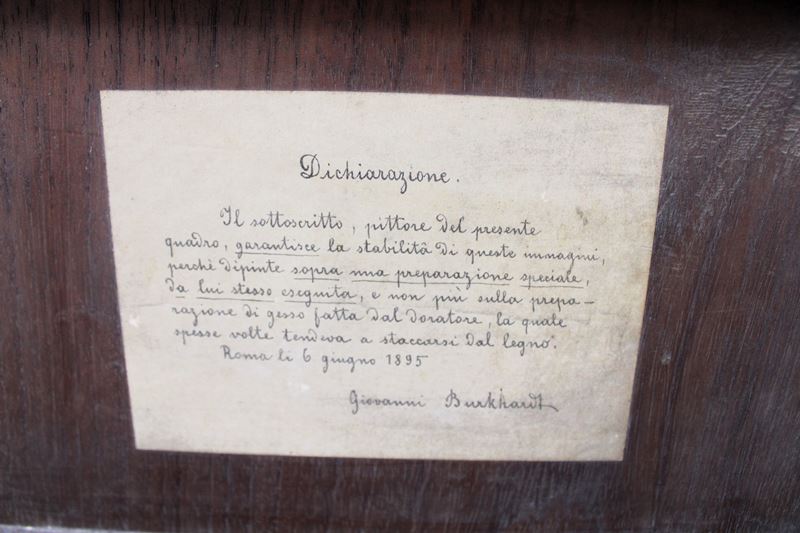 Dichiarazione.
Il sottoscritto, pittore del presente
quadro, garantisce la stabilità di queste immagini,
perchè dipinte sopra una preparazione speciale,
da lui stesso eseguita, e non più sulla prepa-
razione di gesso fatta dal doratore, la quale
spesse volte tendeva a staccarsi dal legno.
Roma li 6 giugno 1895
Giovanni Burkhardt